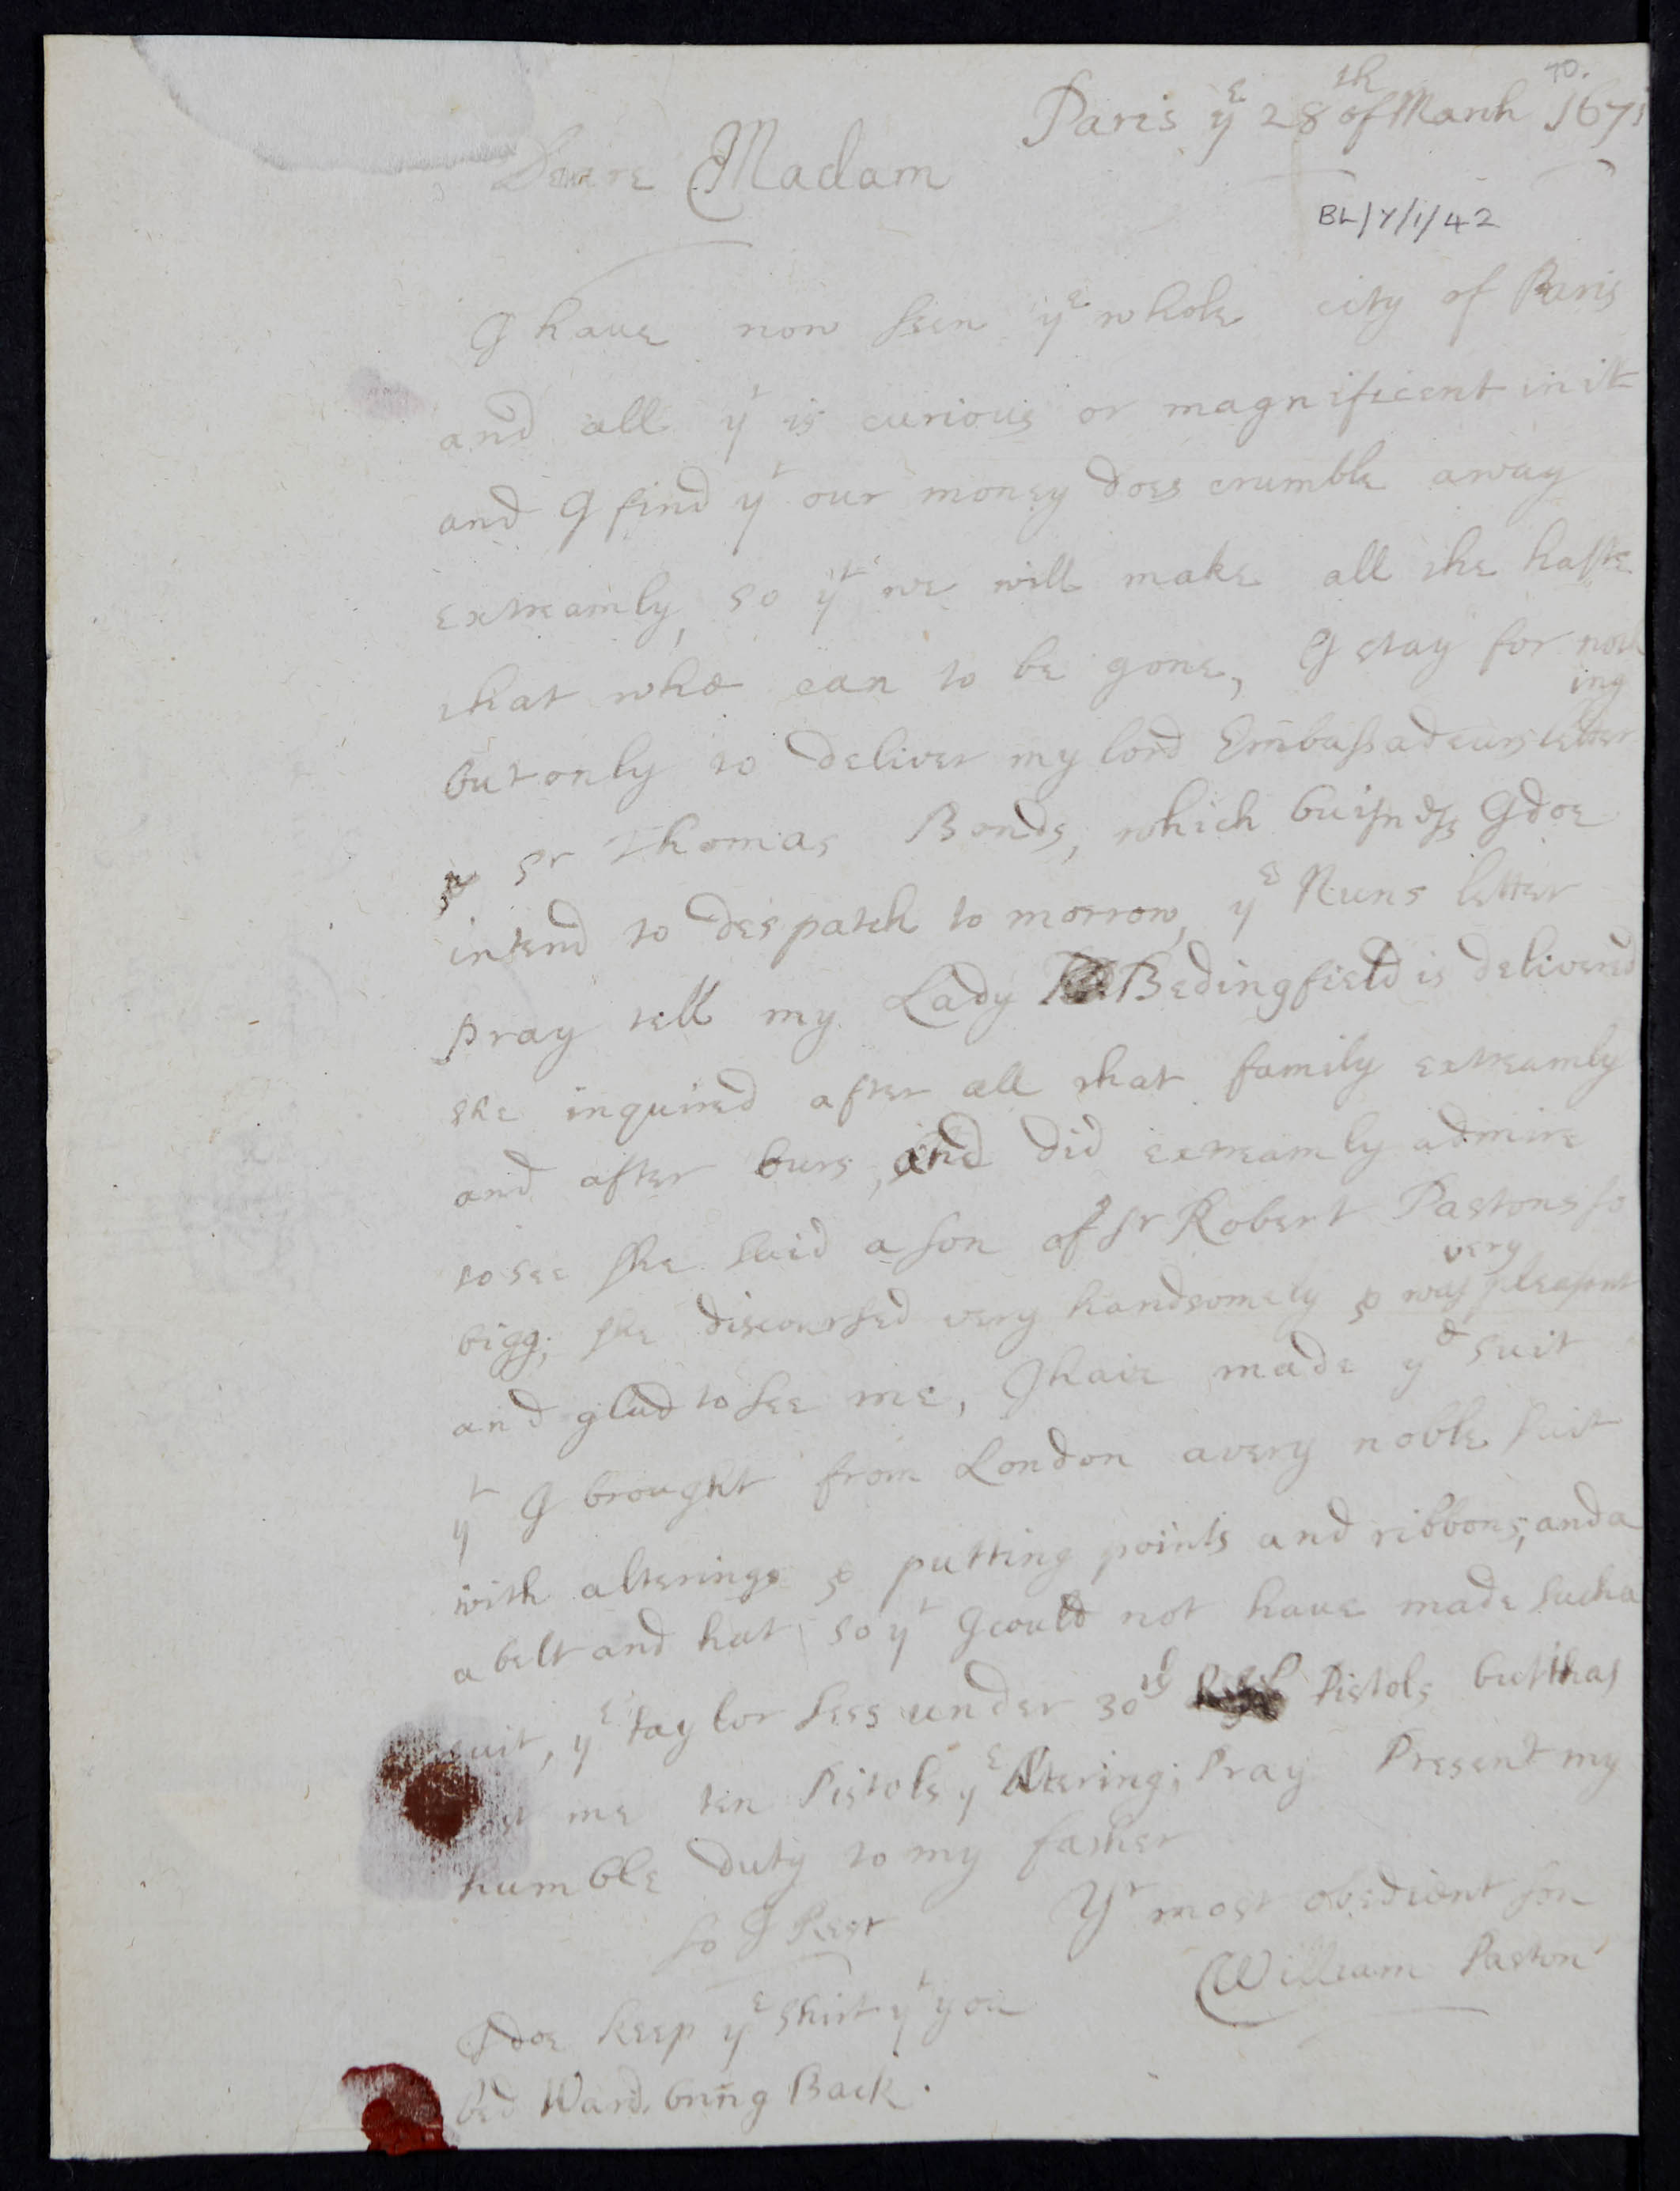 70.
Paris yᵉ 28th of March 1671
Deare Madam
BL/Y/1/42
I haue now seen yᵉ whole city of Paris
and all yᵗ is curious or magnificent in it
and I find yᵗ our money does crumble away
extreamly, so yᵗ we will make all the haste
that whe can to be gone, I stay for noth
ing
but only to deliver my lord Embassadeurs letter
to Sr Thomas Bonds, which I doe
intend to despatch to morrow, yᵉ Nuns letter
pray tell my Lady Bedingfield is delivered
she inquired after all that family extreamly
and after ours, and did extreamly admire
to see she said a son of Sr Robert Pastons so
very
bigg; she discoursed very handsomely & was pleasent
and glad to see me, I haue made yᵉ suit
yᵗ I brought from London a very noble suit
with alterings & putting points and ribbons, and a
a belt and hat so yᵗ I could not haue made such a
suit, yᵉ taylor ses under 30 Pistols but thas
cost me ten Pistols yᵉ Altering; Pray Present my
humble duty to my father
so I Rest Yʳ most obedient son
William Paston
I doe keep yᵉ shirt yᵗ you
bed Ward bring Back.